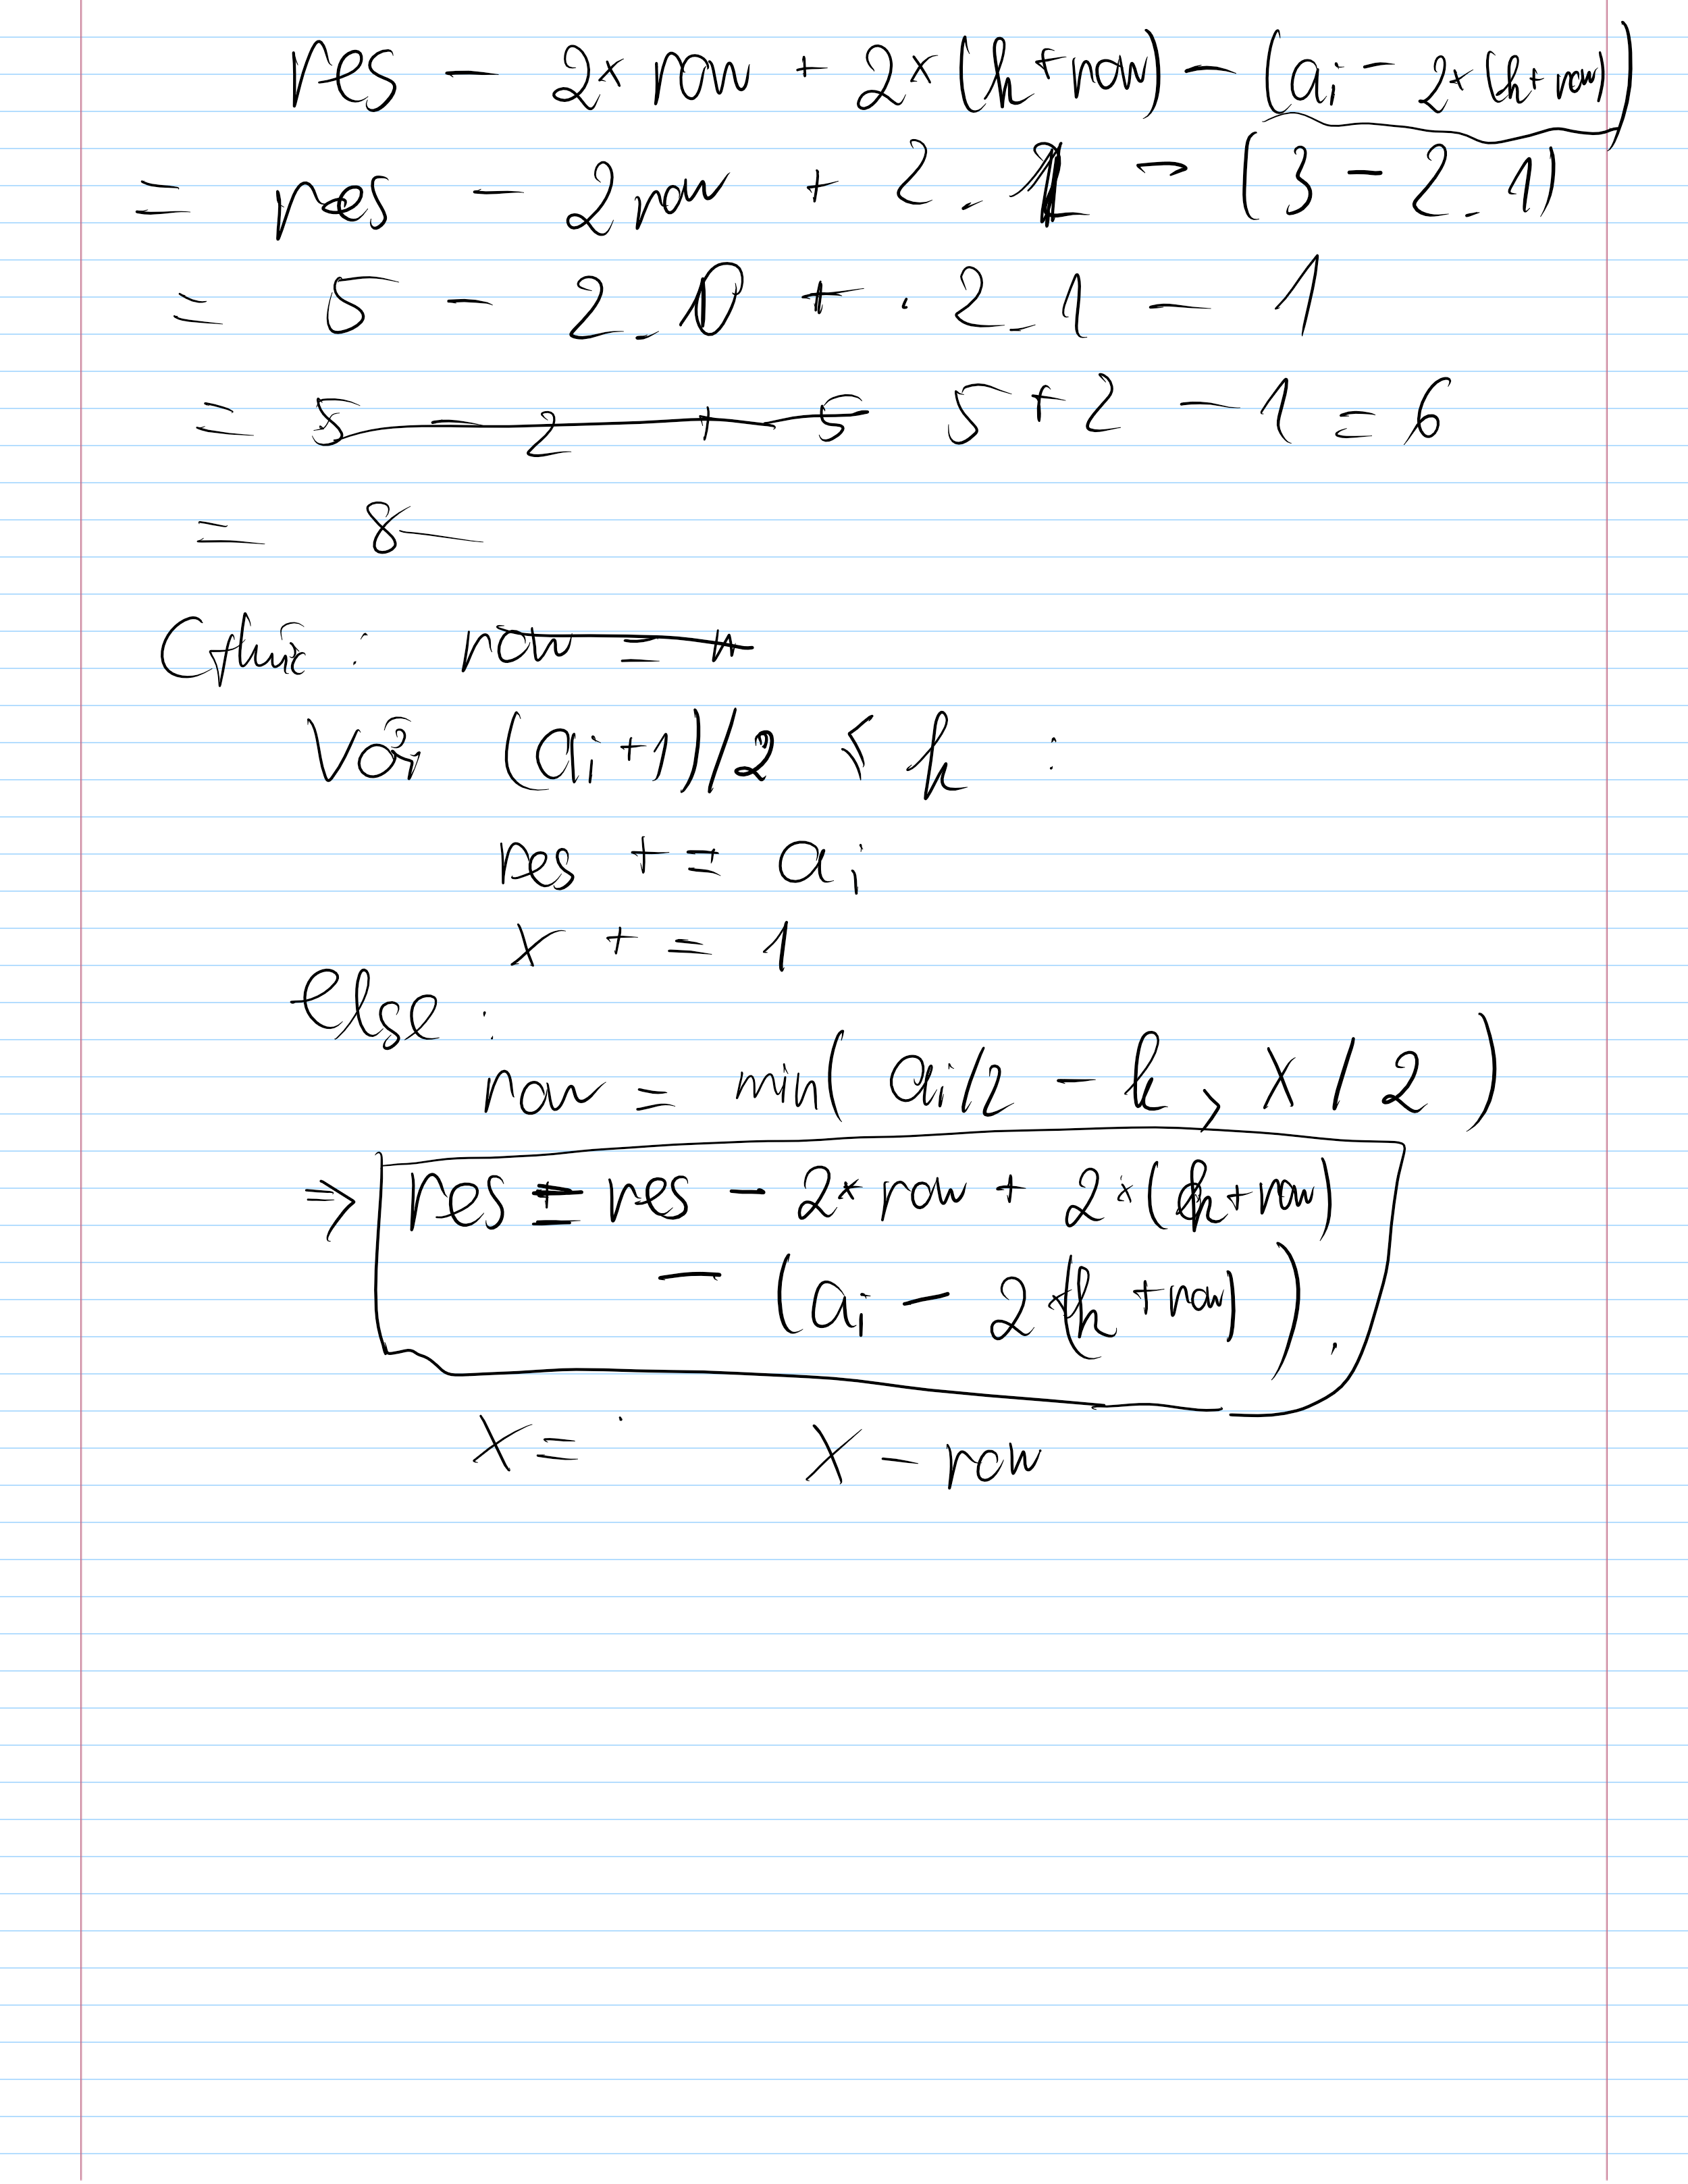 res - 2* row + 2* (h + row) - (ai - 2* (h + row))
= res - 2 row + 2 . 1 - (3 - 2 . 1)
= 5 - 2 . 0 + . 2 . 1 - 1
= 5 - 2 + 5 5 + 2 - 1 = 6
= 8
Cthức : row =
Với (ai + 1) / 2 ≤ h :
res += ai
x += 1
else :
row = min( ai/2 - h , x / 2 )
⇒ res = res - 2* row + 2* (h + row)
- (ai - 2*(h + row)) .
x = x - row